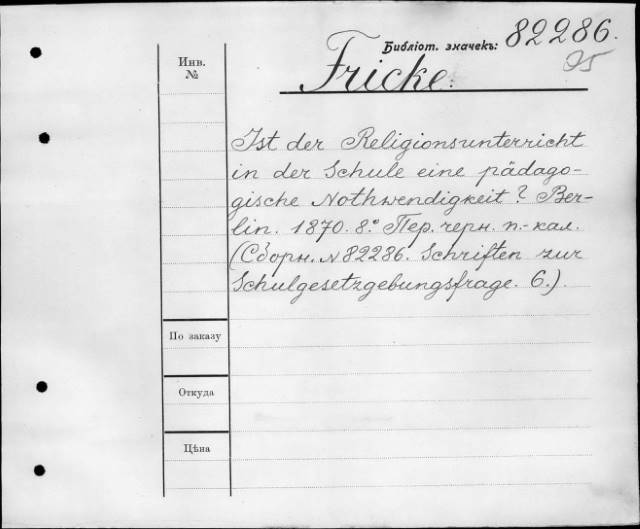 Библіот. значекъ: 82286.
95
Инв. №
Fricke.
Ist der Religionsunterricht
in der Schule eine pädago-
gische Nothwendigkeit? Ber-
lin. 1870. 8.° Пер. черн. п.-кал.
(Сборн. № 82286. Schriften zur
Schulgesetzgebungsfrage. 6.)
По заказу
Откуда
Цѣна